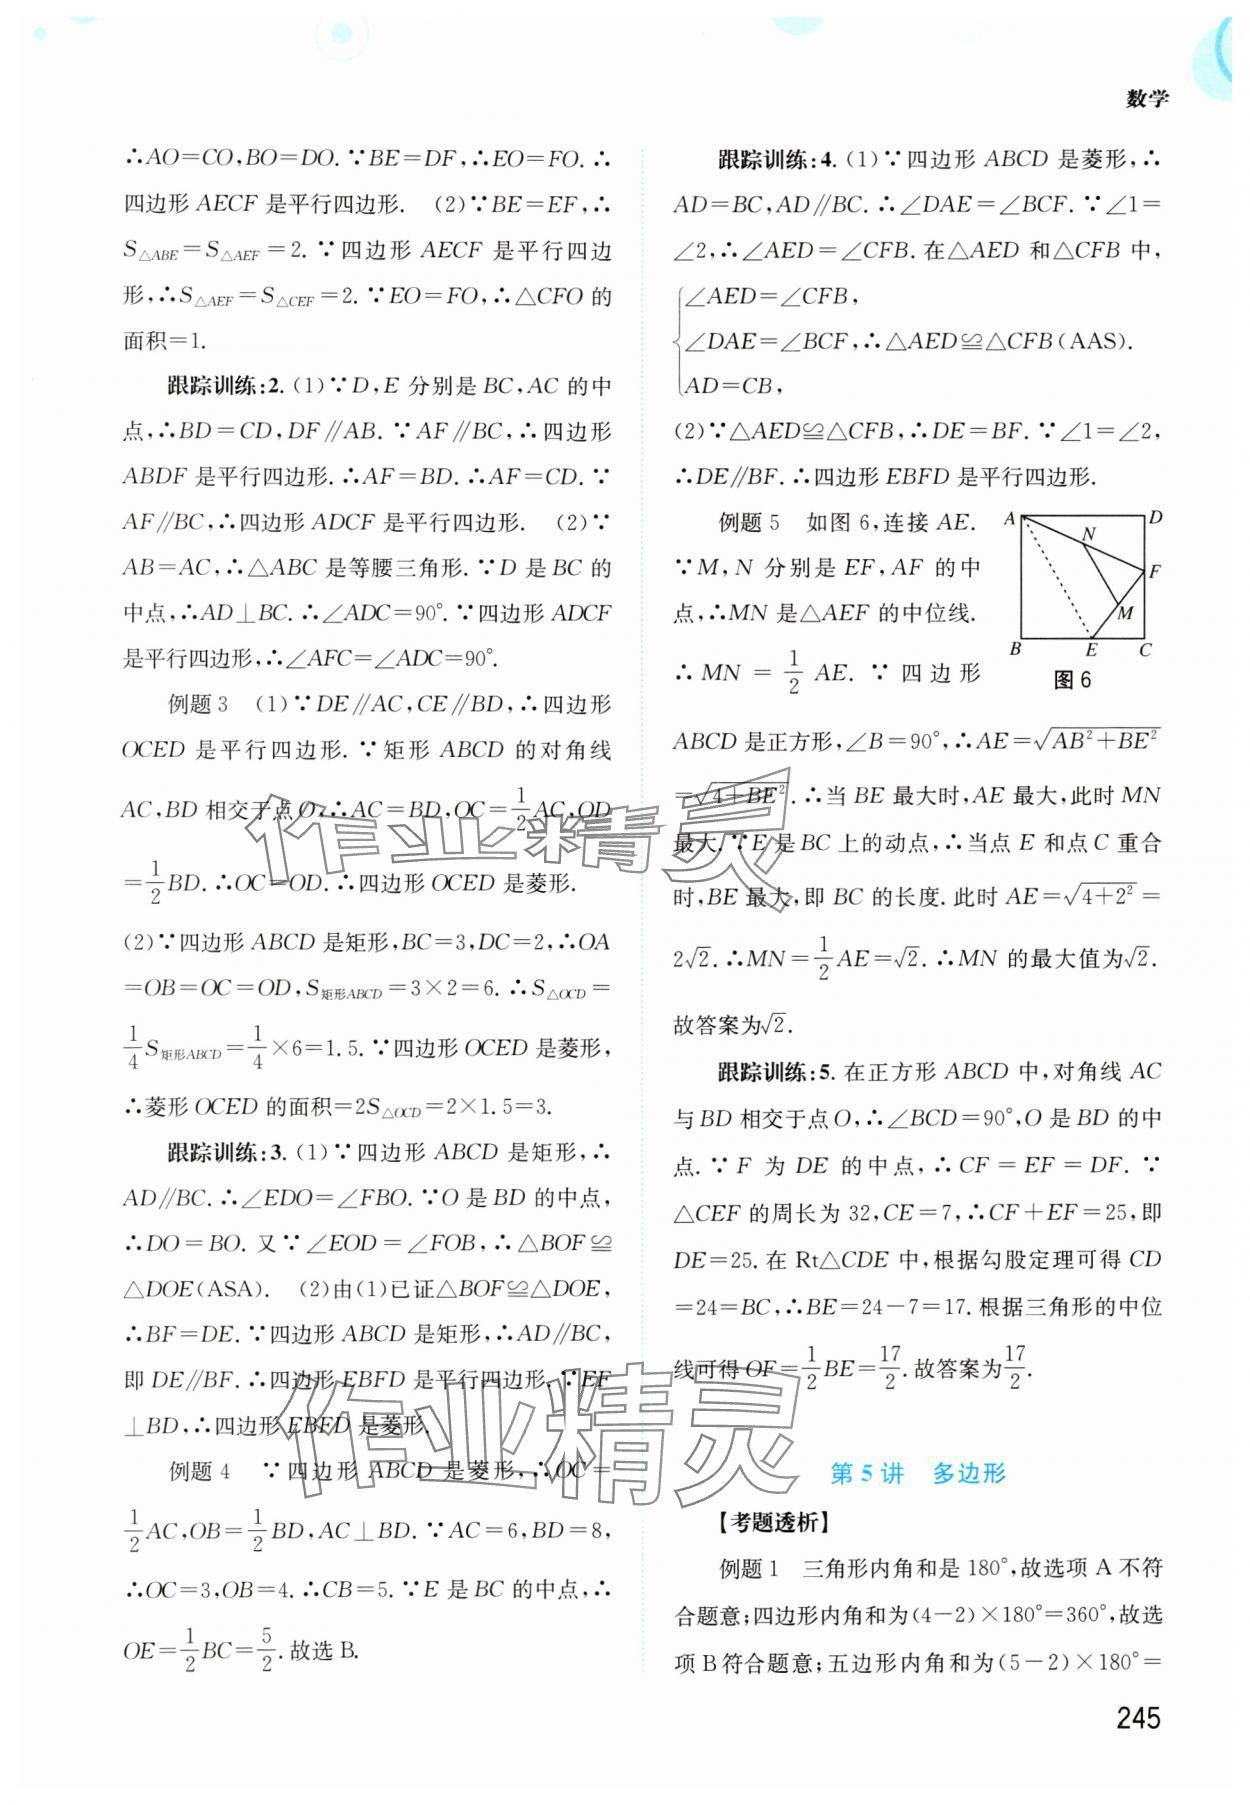 数学
∴AO=CO,BO=DO.∵BE=DF,∴EO=FO.∴
四边形 AECF 是平行四边形. (2)∵BE=EF,∴
S△ABE=S△AEF=2.∵四边形 AECF 是平行四边
形,∴S△AEF=S△CEF=2.∵EO=FO,∴△CFO 的
面积=1.
跟踪训练:2.(1)∵D,E 分别是 BC,AC 的中
点,∴BD=CD,DF∥AB.∵AF∥BC,∴四边形
ABDF 是平行四边形.∴AF=BD.∴AF=CD.∵
AF∥BC,∴四边形 ADCF 是平行四边形. (2)∵
AB=AC,∴△ABC 是等腰三角形.∵D 是 BC 的
中点,∴AD⊥BC.∴∠ADC=90°.∵四边形 ADCF
是平行四边形,∴∠AFC=∠ADC=90°.
例题 3 (1)∵DE∥AC,CE∥BD,∴四边形
OCED 是平行四边形.∵矩形 ABCD 的对角线
AC,BD 相交于点 O,∴AC=BD,OC=1/2AC,OD
=1/2BD.∴OC=OD.∴四边形 OCED 是菱形.
(2)∵四边形 ABCD 是矩形,BC=3,DC=2,∴OA
=OB=OC=OD,S矩形ABCD=3×2=6.∴S△OCD=
1/4S矩形ABCD=1/4×6=1.5.∵四边形 OCED 是菱形,
∴菱形 OCED 的面积=2S△OCD=2×1.5=3.
跟踪训练:3.(1)∵四边形 ABCD 是矩形,∴
AD∥BC.∴∠EDO=∠FBO.∵O 是 BD 的中点,
∴DO=BO.又∵∠EOD=∠FOB,∴△BOF≌
△DOE(ASA). (2)由(1)已证△BOF≌△DOE,
∴BF=DE.∵四边形 ABCD 是矩形,∴AD∥BC,
即 DE∥BF.∴四边形 EBFD 是平行四边形.∵EF
⊥BD,∴四边形 EBFD 是菱形.
例题 4 ∵四边形 ABCD 是菱形,∴OC=
1/2AC,OB=1/2BD,AC⊥BD.∵AC=6,BD=8,
∴OC=3,OB=4.∴CB=5.∵E 是 BC 的中点,∴
OE=1/2BC=5/2.故选 B.
跟踪训练:4.(1)∵四边形 ABCD 是菱形,∴
AD=BC,AD∥BC.∴∠DAE=∠BCF.∵∠1=
∠2,∴∠AED=∠CFB.在△AED 和△CFB 中,
∠AED=∠CFB,
∠DAE=∠BCF,∴△AED≌△CFB(AAS).
AD=CB,
(2)∵△AED≌△CFB,∴DE=BF.∵∠1=∠2,
∴DE∥BF.∴四边形 EBFD 是平行四边形.
例题 5 如图 6,连接 AE.
∵M,N 分别是 EF,AF 的中
点,∴MN 是△AEF 的中位线.
∴MN=1/2AE.∵四边形
A D
N
F
M
B E C
图6
ABCD 是正方形,∠B=90°,∴AE=√(AB²+BE²)
=√(4+BE²).∴当 BE 最大时,AE 最大,此时 MN
最大.∵E 是 BC 上的动点,∴当点 E 和点 C 重合
时,BE 最大,即 BC 的长度.此时 AE=√(4+2²)=
2√2.∴MN=1/2AE=√2.∴MN 的最大值为√2.
故答案为√2.
跟踪训练:5.在正方形 ABCD 中,对角线 AC
与 BD 相交于点 O,∴∠BCD=90°,O 是 BD 的中
点.∵F 为 DE 的中点,∴CF=EF=DF.∵
△CEF 的周长为 32,CE=7,∴CF+EF=25,即
DE=25.在 Rt△CDE 中,根据勾股定理可得 CD
=24=BC,∴BE=24-7=17.根据三角形的中位
线可得 OF=1/2BE=17/2.故答案为17/2.
第 5 讲 多边形
【考题透析】
例题 1 三角形内角和是 180°,故选项 A 不符
合题意;四边形内角和为(4-2)×180°=360°,故选
项 B 符合题意;五边形内角和为(5-2)×180°=
245
作业精灵
作业精灵